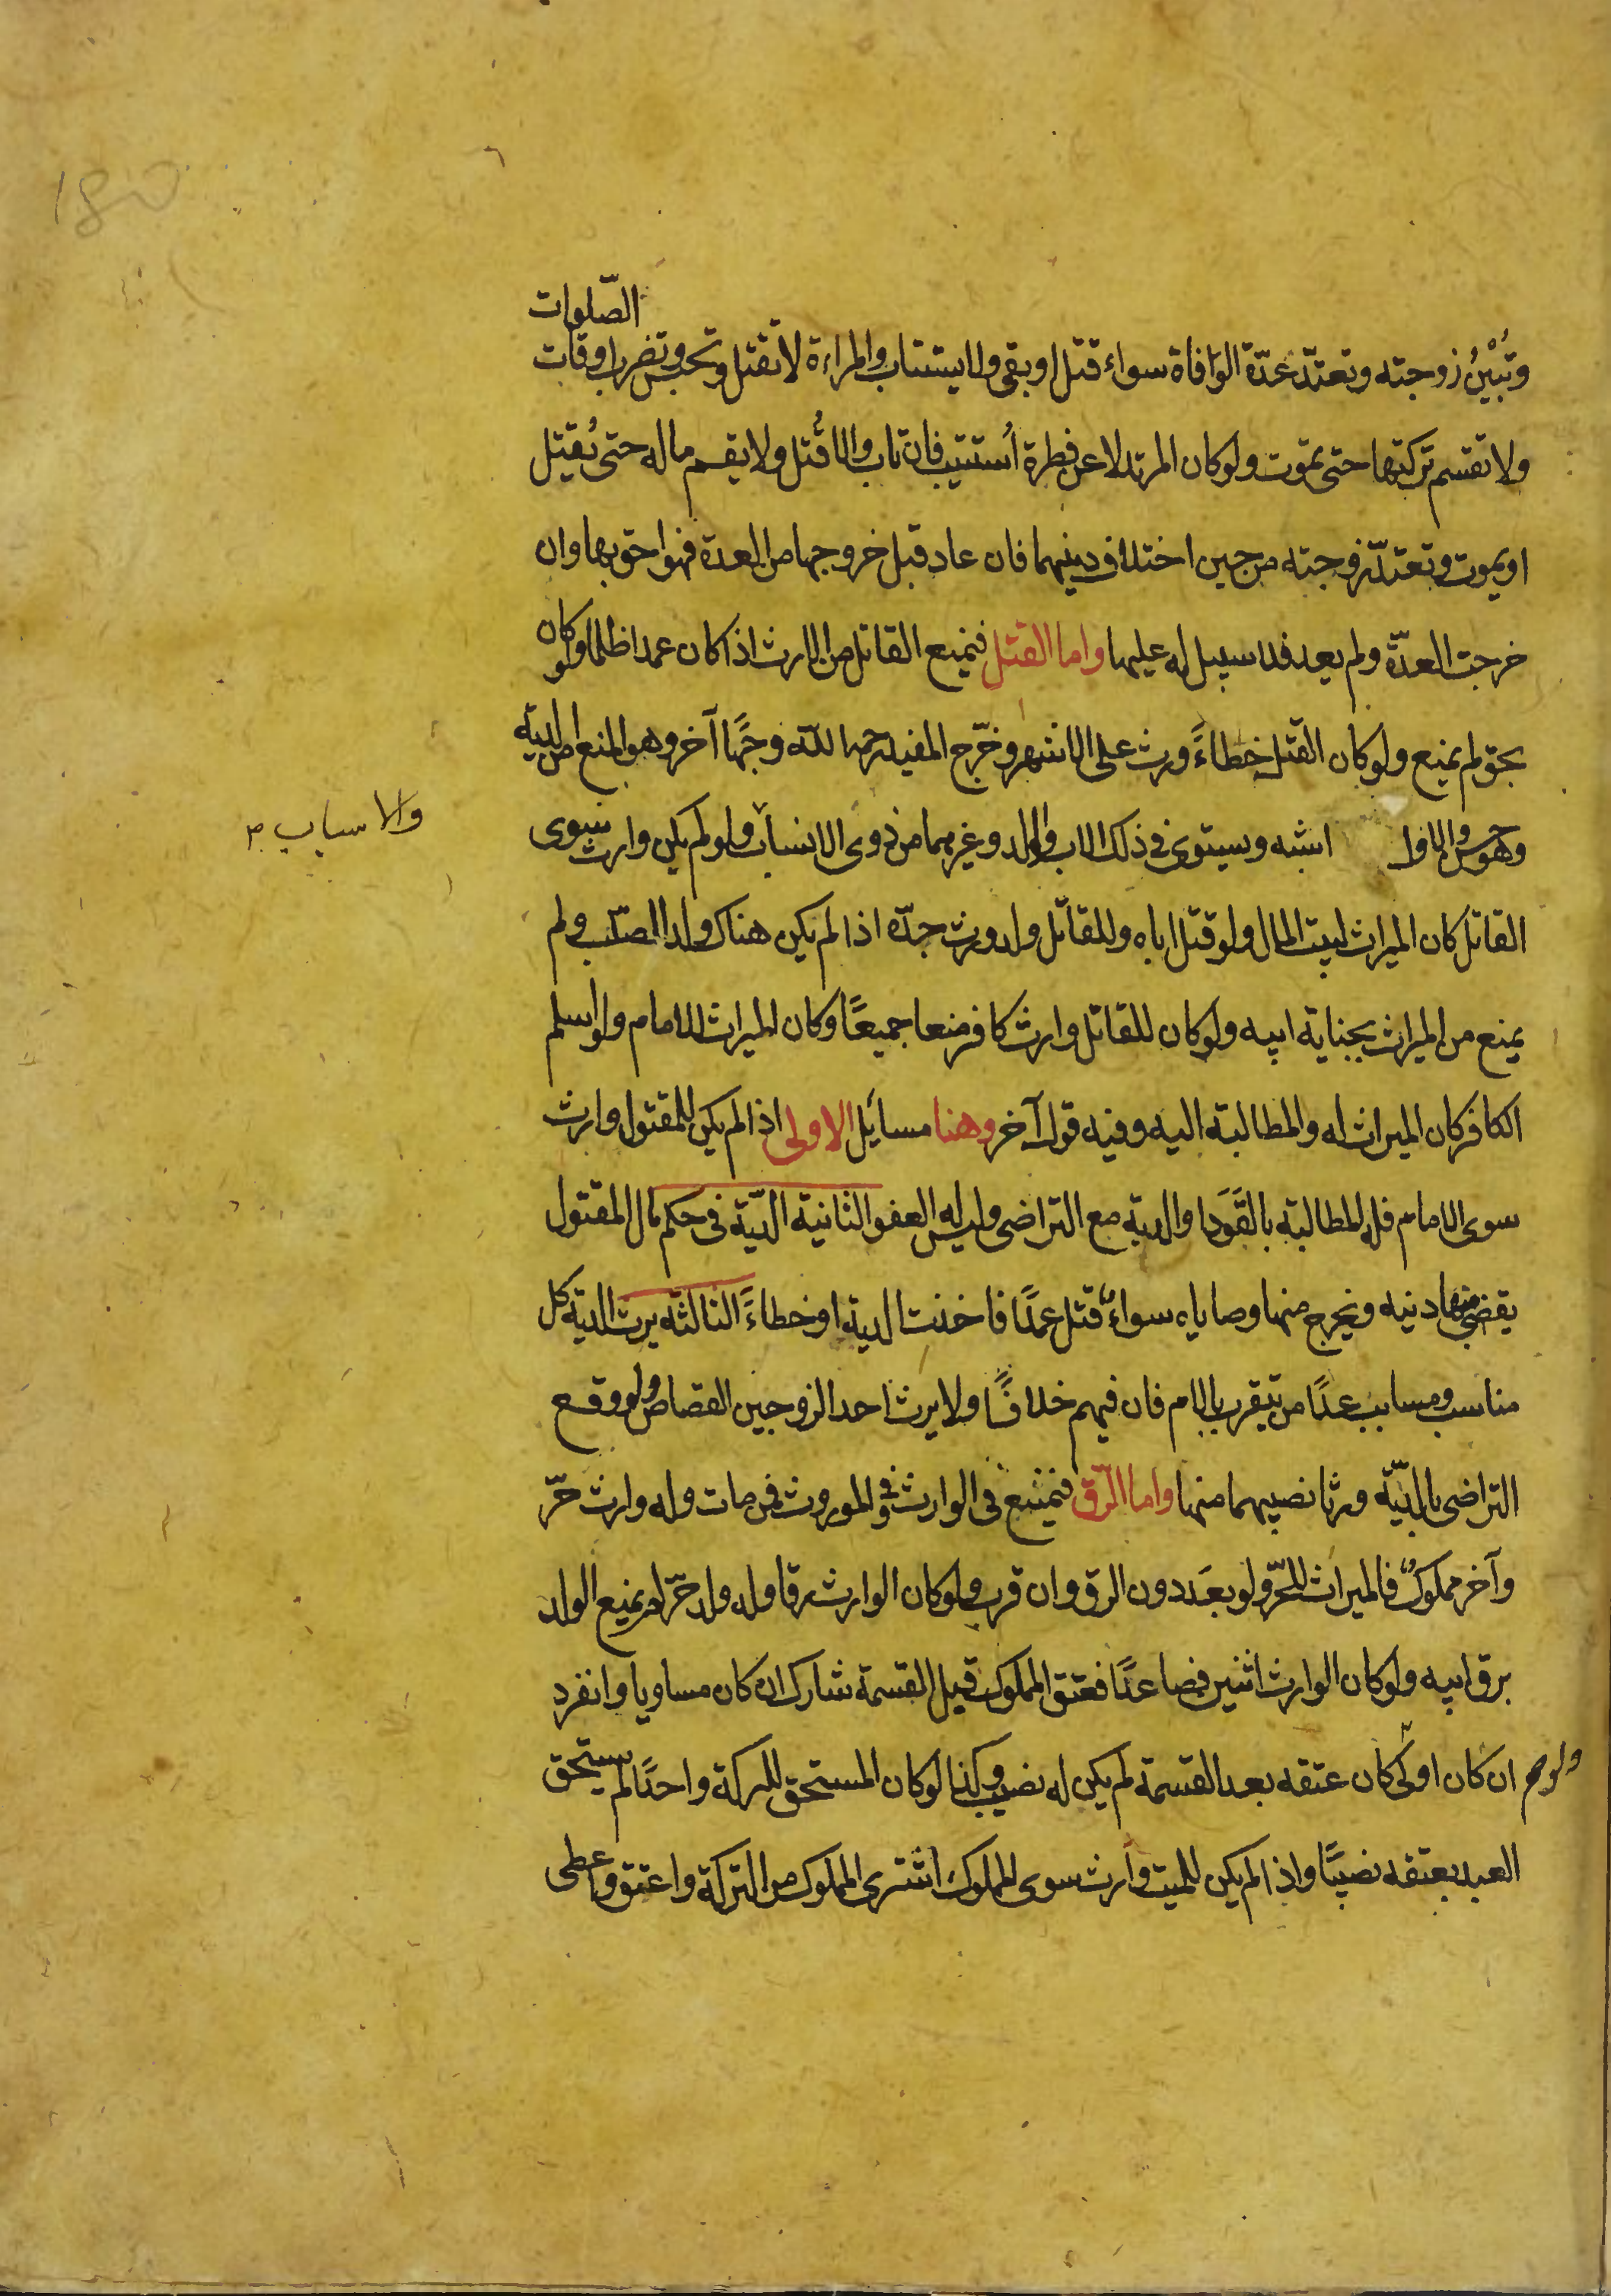 الصّلوات
وتُبْيَنُ زوجته وتعتدّ عدّة الوَافاة سواء قتل او بقى ولا يستتاب والمراءة لا تقتل وتحبس وتضرب اوقات
ولا تقسم تركتها حتى تموت ولو كان المرتد لا عن فطرة اُستتيب فان تاب والا قُتل ولا يقسم ماله حتى يُقتل
او يموت وتعتدّ زوجته من حين اختلاف دينهما فان عاد قبل خروجها من العدة فهو احق بها وان
خرجت العدّة ولم يعد فلا سبيل له عليها واما القتل فيمنع القاتل من الارث اذا كان عمدا ظلما ولو كان
بحق لم يمنع ولو كان القتل خطاءً ورث على الاشهر وخرّج المفيد رحمه الله وجهًا آخر وهو المنع من الدية
وهو حسن والاول اشبه ويستوى في ذلك الاب والولد وغيرهما من ذوى الانساب ولو لم يكن وارث سوى
والاسباب
القاتل كان الميراث لبيت المال ولو قتل اباه وللقاتل ولد ورث جدّه اذا لم يكن هناك ولد للصلب ولم
يمنع من الميراث بجناية ابيه ولو كان للقاتل وارث كافر منعا جميعًا وكان الميراث للامام ولو اسلم
الكافر كان الميراث له والمطالبة اليه وفيه قول آخر وهنا مسائل الاولى اذا لم يكن للمقتول وارث
سوى الامام فله المطالبة بالقَوَد او الدية مع التراضى وليس له العفو الثانية الدّية فى حكم مال المقتول
يقضى منها دينه ويخرج منها وصاياه سواءٌ قتل عمدًا فاخذت الدية او خطاءً الثالثة يرث الدية كل
مناسب ومسابب عدا من يتقرب بالام فان فيهم خلافًا ولا يرث احد الزوجين القصاص ولو وقع
التراضى بالديّة ورثا نصيبهما منها واما الرّق فيمنع فى الوارث وفى الموروث فمن مات وله وارث حرّ
وآخر مملوكٌ فالميراث للحرّ ولو بعَد دون الرق وان قرب ولو كان الوارث رقا وله ولد حرّ لم يمنع الولد
برق ابيه ولو كان الوارث اثنين فصاعدًا فعتق المملوك قبل القسمة شارك ان كان مساويا وانفرد
ان كان اولى كان عتقه بعد القسمة لم يكن له نصيب وكذا لو كان المستحق للتركة واحدًا لم يستحق
ولو
العبد بعتقه نصيبًا واذا لم يكن للميت وارث سوى المملوك اشترى المملوك من التركة واعتق واعطى